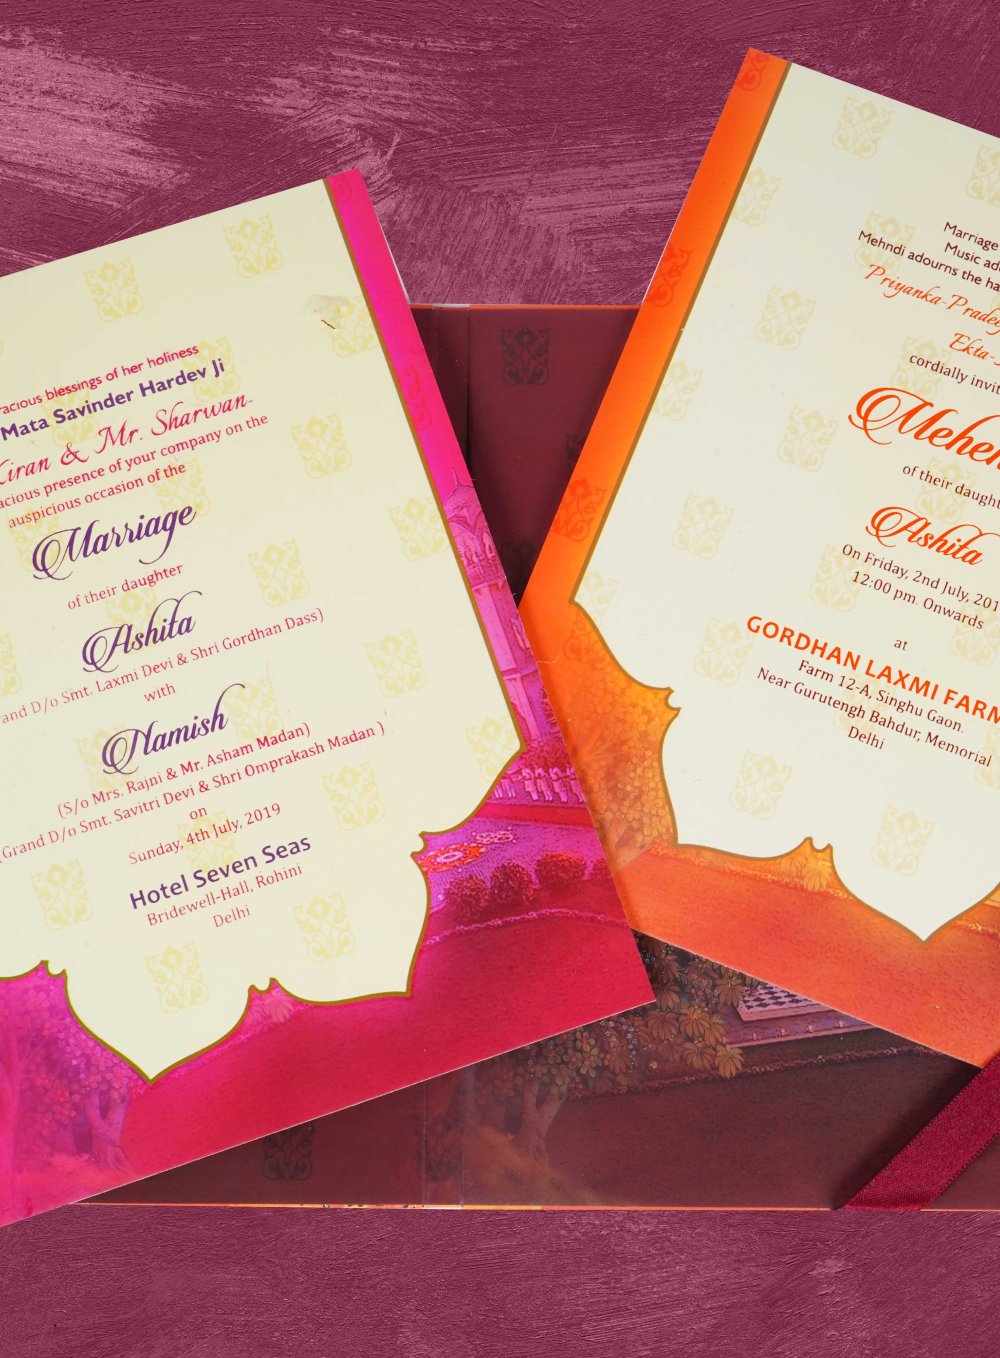 racious blessings of her holiness
Mata Savinder Hardev Ji
Kiran & Mr. Sharwan
acious presence of your company on the
auspicious occasion of the
Marriage
of their daughter
Ashita
and D/o Smt. Laxmi Devi & Shri Gordhan Dass)
with
Namish
(S/o Mrs. Rajni & Mr. Asham Madan)
(Grand D/o Smt. Savitri Devi & Shri Omprakash Madan )
on
Sunday, 4th July, 2019
Hotel Seven Seas
Bridewell-Hall, Rohini
Delhi
Marriage
Music ad
Mehndi adourns the ha
Priyanka-Prade
Ekta-
cordially invit
Mehen
of their daught
Ashita
On Friday, 2nd July, 201
12:00 pm. Onwards
at
GORDHAN LAXMI FARM
Farm 12-A, Singhu Gaon.
Near Gurutengh Bahdur, Memorial
Delhi